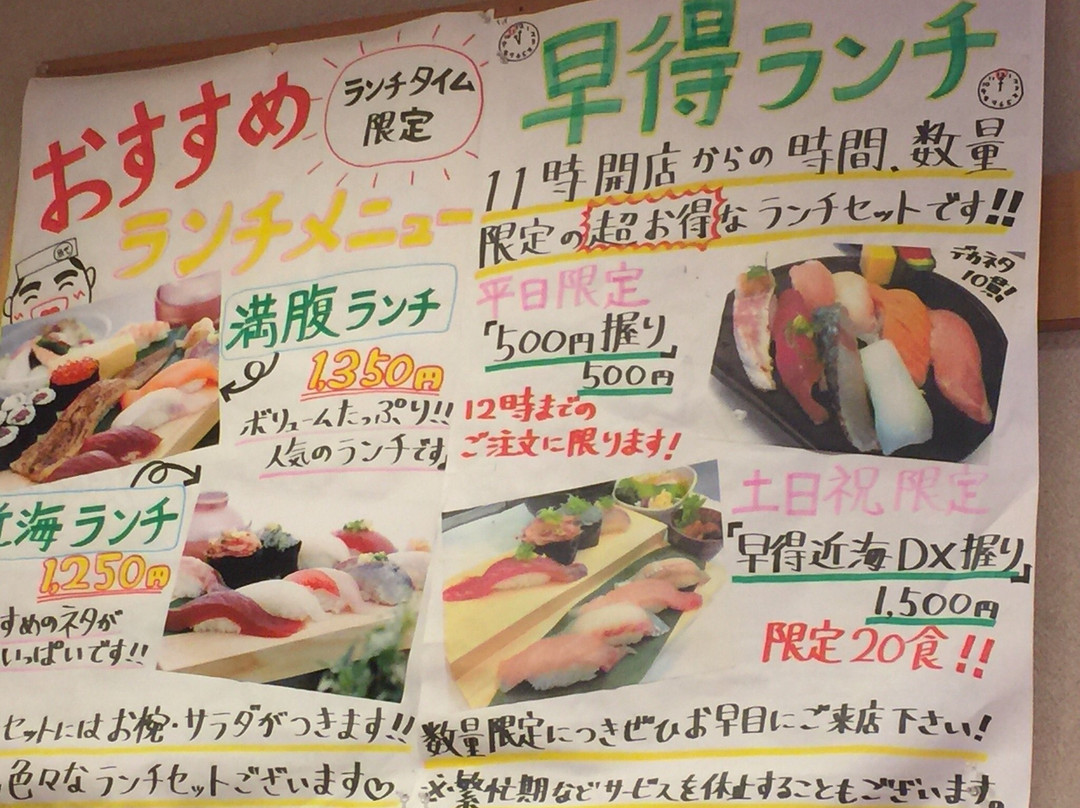 おすすめ
ランチタイム
限定
ランチメニュー
満腹ランチ
1,350円
ボリュームたっぷり!!
人気のランチです
近海ランチ
1,250円
すめのネタが
いっぱいです!!
セットにはお椀・サラダがつきます!!
色々なランチセットございます♡
早得ランチ
11時開店からの時間、数量
限定の超お得なランチセットです!!
平日限定
「500円握り」
500円
12時までの
ご注文に限ります!
デカネタ
10貫!
土日祝限定
「早得近海DX握り」
1,500円
限定20食!!
数量限定につきぜひお早目にご来店下さい!
※繁忙期などサービスを休止することもございます